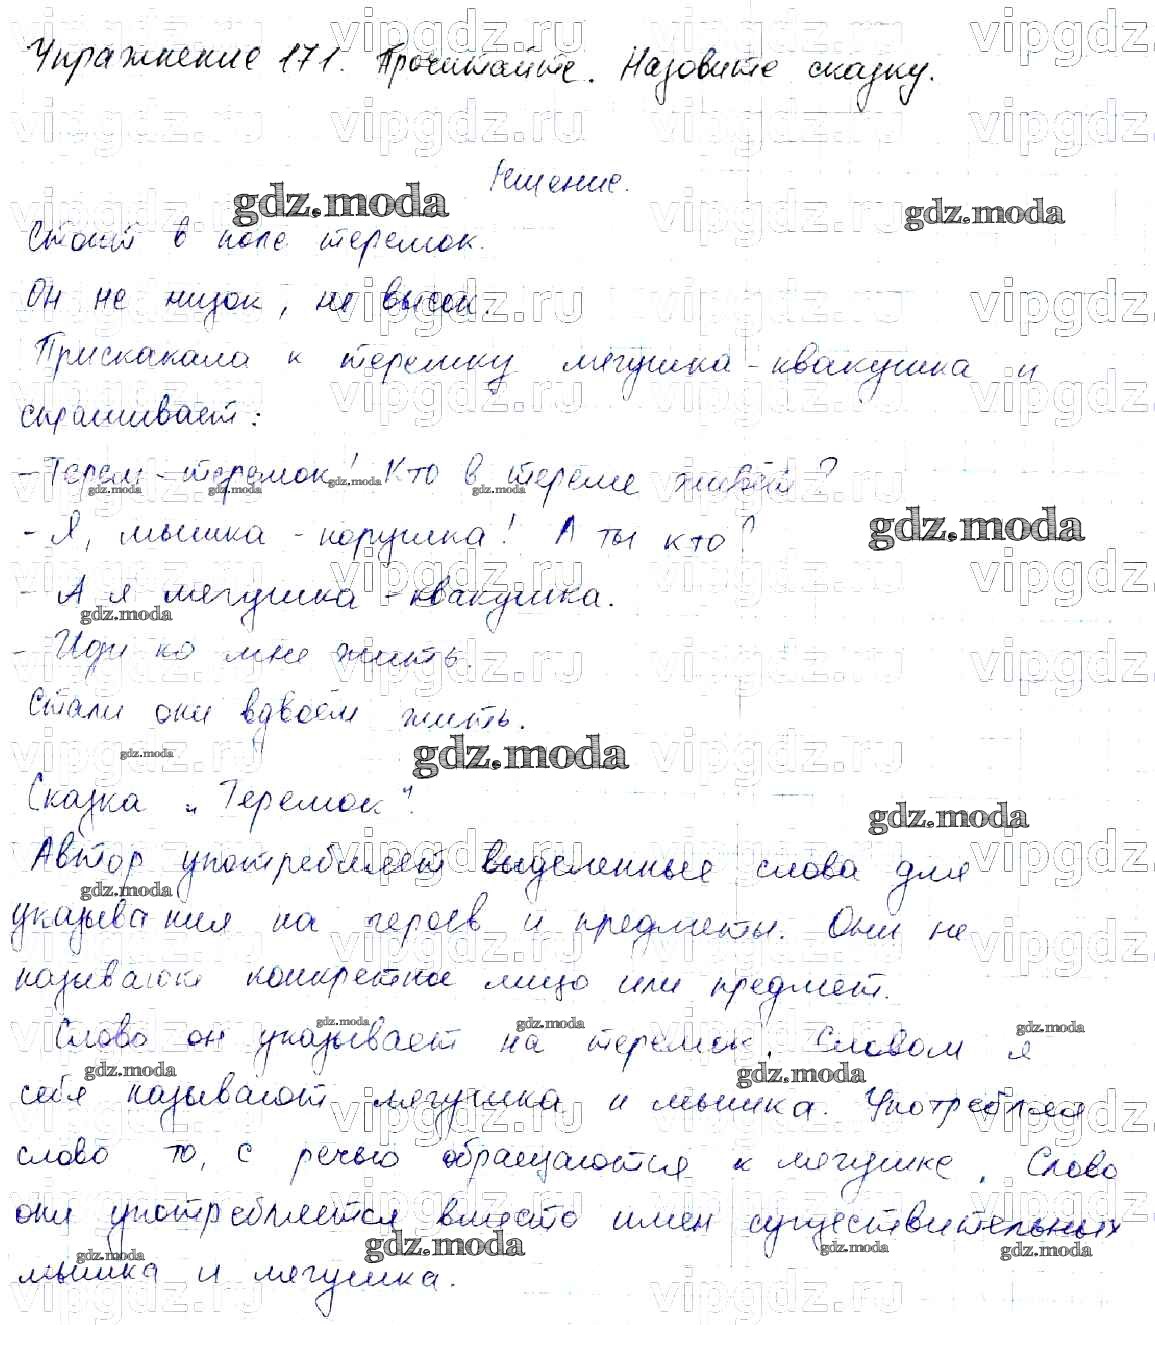 Упражнение 171. Прочитайте. Назовите сказку.
Решение.
Стоит в поле теремок.
Он не низок, не высок.
Прискакала к теремку лягушка-квакушка и
спрашивает:
- Терем-теремок! Кто в тереме живёт?
- Я, мышка-норушка! А ты кто?
- А я лягушка-квакушка.
- Иди ко мне жить.
Стали они вдвоём жить.
Сказка „Теремок".
Автор употребляет выделенные слова для
указывания на героев и предметы. Они не
называют конкретное лицо или предмет.
Слово он указывает на теремок. Словом я
себя называют лягушка и мышка. Употребляя
слово ты, с речью обращаются к лягушке. Слово
они употребляется вместо имен существительных
мышка и лягушка.
gdz.moda
vipgdz.ru